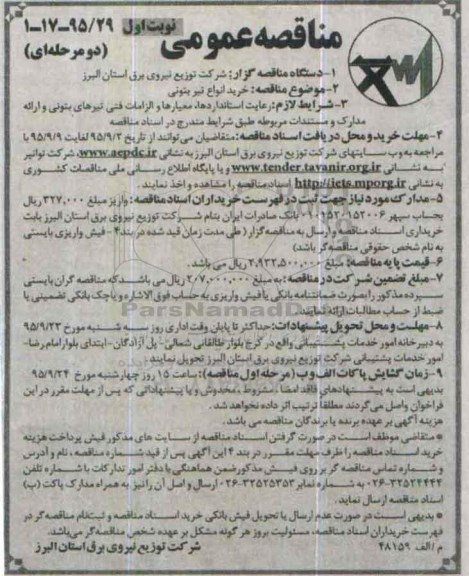 مناقصه عمومی
نوبت اول
۱-۱۷-۹۵/۲۹
(دو مرحله‌ای)
۱-دستگاه مناقصه گزار: شرکت توزیع نیروی برق استان البرز
۲-موضوع مناقصه: خرید انواع تیر بتونی
۳-شرایط لازم: رعایت استانداردها، معیارها و الزامات فنی تیرهای بتونی و ارائه
مدارک و مستندات مربوطه طبق شرایط مندرج در اسناد مناقصه
۴-مهلت خرید و محل دریافت اسناد مناقصه: متقاضیان می‌توانند از تاریخ ۹۵/۹/۲ لغایت ۹۵/۹/۹ با
مراجعه به وب سایتهای شرکت توزیع نیروی برق استان البرز به نشانی www.aepdc.ir، شرکت توانیر
به نشانی www.tender.tavanir.org.ir و یا پایگاه اطلاع رسانی ملی مناقصات کشوری
به نشانی http://iets.mporg.ir اسناد مناقصه را مشاهده و اخذ نمایند.
۵-مدارک مورد نیاز جهت ثبت در فهرست خریداران اسناد مناقصه: واریز مبلغ ۳۲۷,۰۰۰ ریال
بحساب سپهر بانک صادرات ایران بنام شرکت توزیع نیروی برق استان البرز بابت
خریداری اسناد مناقصه و ارسال به مناقصه‌گزار (طی مدت زمان قید شده در بند۴-فیش واریزی بایستی
به نام شخص حقوقی مناقصه‌گر باشد)
۶-قیمت پایه مناقصه: مبلغ ۲,۹۳۲,۵۰۰,۰۰۰ ریال می باشد.
۷-مبلغ تضمین شرکت در مناقصه: به مبلغ ۲۰۷,۰۰۰,۰۰۰ ریال می باشد که مناقصه گران بایستی
سپرده مذکور را بصورت ضمانتنامه بانکی یا فیش واریزی به حساب فوق الاشاره و یا چک بانکی تضمینی یا
ضبط از حساب مطالبات ارائه نمایند.
۸-مهلت و محل تحویل پیشنهادات: حداکثر تا پایان وقت اداری روز سه شنبه مورخ ۹۵/۹/۲۳
به دبیرخانه امور خدمات پشتیبانی واقع در کرج بلوار طالقانی شمالی- پل آزادگان-ابتدای بلوار امام رضا-
امور خدمات پشتیبانی شرکت توزیع نیروی برق استان البرز تحویل نمایند.
۹-زمان گشایش پاکات الف و ب (مرحله اول مناقصه): ساعت ۱۵ روز چهارشنبه مورخ ۹۵/۹/۲۴
بدیهی است به پیشنهادهای فاقد امضا، مشروط، مخدوش و یا پیشنهاداتی که پس از مهلت مقرر در این
فراخوان واصل می‌گردند مطلقا ترتیب اثر داده نخواهد شد.
هزینه آگهی بر عهده برنده یا برندگان مناقصه می باشد.
* متقاضی موظف است در صورت گرفتن اسناد مناقصه از سایت های مذکور فیش پرداخت هزینه
خرید اسناد مناقصه را ظرف مهلت مقرر در بند ۴ این آگهی پس از قید شماره مناقصه، نام و آدرس
و شماره تماس مناقصه گر بر روی فیش مذکور ضمن هماهنگی با دفتر امور تدارکات با شماره تلفن
به شماره نمابر ۰۲۶-۳۲۵۲۵۳۵۳ ارسال و اصل آن را نیز به همراه مدارک پاکت (ب)
اسناد مناقصه ارسال نماید.
* بدیهی است در صورت عدم ارسال یا تحویل فیش بانکی خرید اسناد مناقصه و ثبت‌نام مناقصه‌گر در
فهرست خریداران اسناد مناقصه، مسئولیت بروز هر گونه مشکل بر عهده شخص مناقصه‌گر می‌باشد.
م / الف ۴۸۱۵۹
شرکت توزیع نیروی برق استان البرز